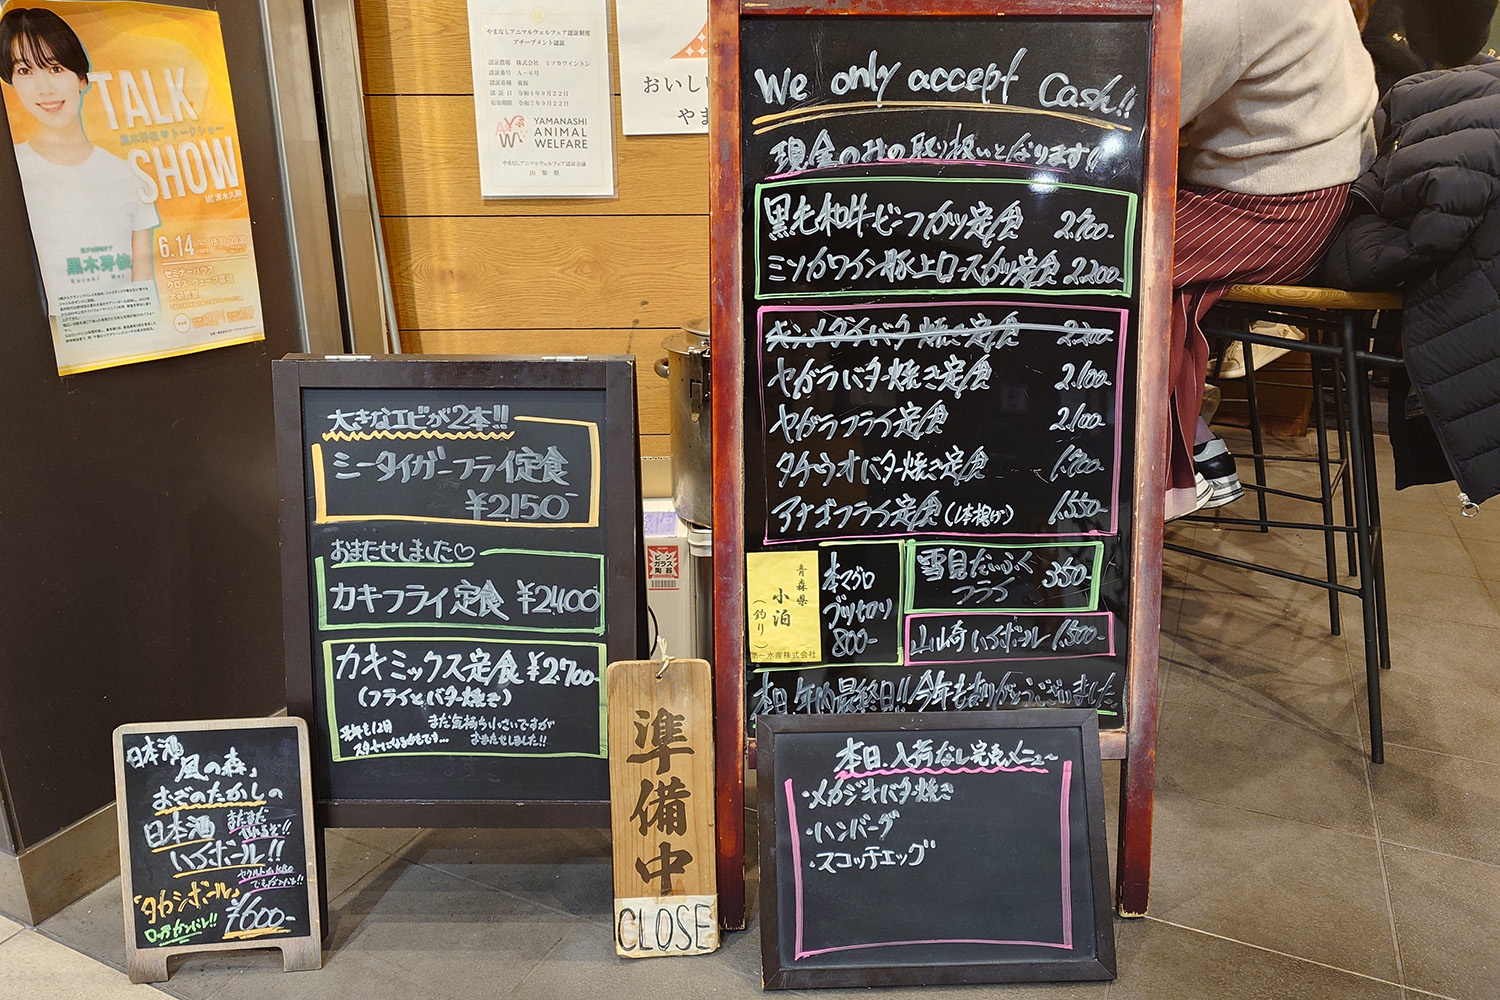 TALK
黒木芽依♥トークショー
SHOW
MC 清水久嗣
6.14
18:10
20:30
セミナーハウス
クロス・ウェーブ幕張
大研修室
黒木芽依
Kuroki Mei
やまなしアニマルウェルフェア認証制度
アチーブメント認証
認証農場 株式会社 ミソカワイントン
認証番号 A-6号
認証畜種 養豚
認証日 令和4年9月22日
有効期限 令和7年9月22日
YAMANASHI
ANIMAL
WELFARE
やまなしアニマルウェルフェア認証会議
山梨県
おいし
やま
We only accept Cash!!
現金のみの取り扱いとなります!!
黒毛和牛ビーフカツ定食 2.900-
ミソカワイン豚上ロースカツ定食 2.200-
キンメダイバター焼き定食 2.200-
ヤガラバター焼き定食 2.100-
ヤガラフライ定食 2.100-
タチウオバター焼き定食 1.900-
アナゴフライ定食(1本揚げ) 1.550-
青森県
小泊
(釣り)
第一水産株式会社
本マグロ
ブツ切り
800-
雪見だいふく
フライ
350-
山崎ハイボール 1.500-
本日年内最終日!!今年もありがとうございました
大きなエビが2本!!
ミータイガーフライ定食
¥2150-
おまたせしました♡
カキフライ定食 ¥2400
カキミックス定食 ¥2.700-
(フライとバター焼き)
まだ気持ち小さいですが
おまたせしました!!
ビン
ガラス
陶器
準備中
CLOSE
日本酒
「風の森」
おぞのたかしの
日本酒 まだまだ
やれるぞ!!
ハイボール!!
「タカシボール」
¥600-
本日、入荷なし完売メニュー
・メカジキバター焼き
・ハンバーグ
・スコッチエッグ